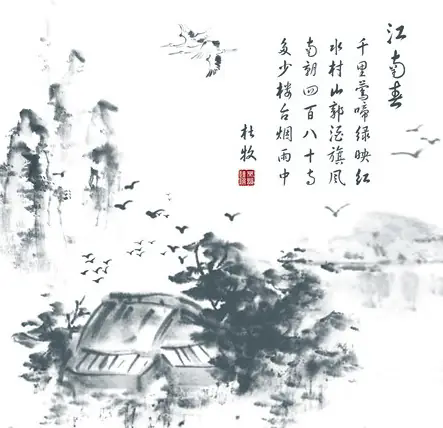 江南春
千里莺啼绿映红
水村山郭酒旗风
南朝四百八十寺
多少楼台烟雨中
杜牧